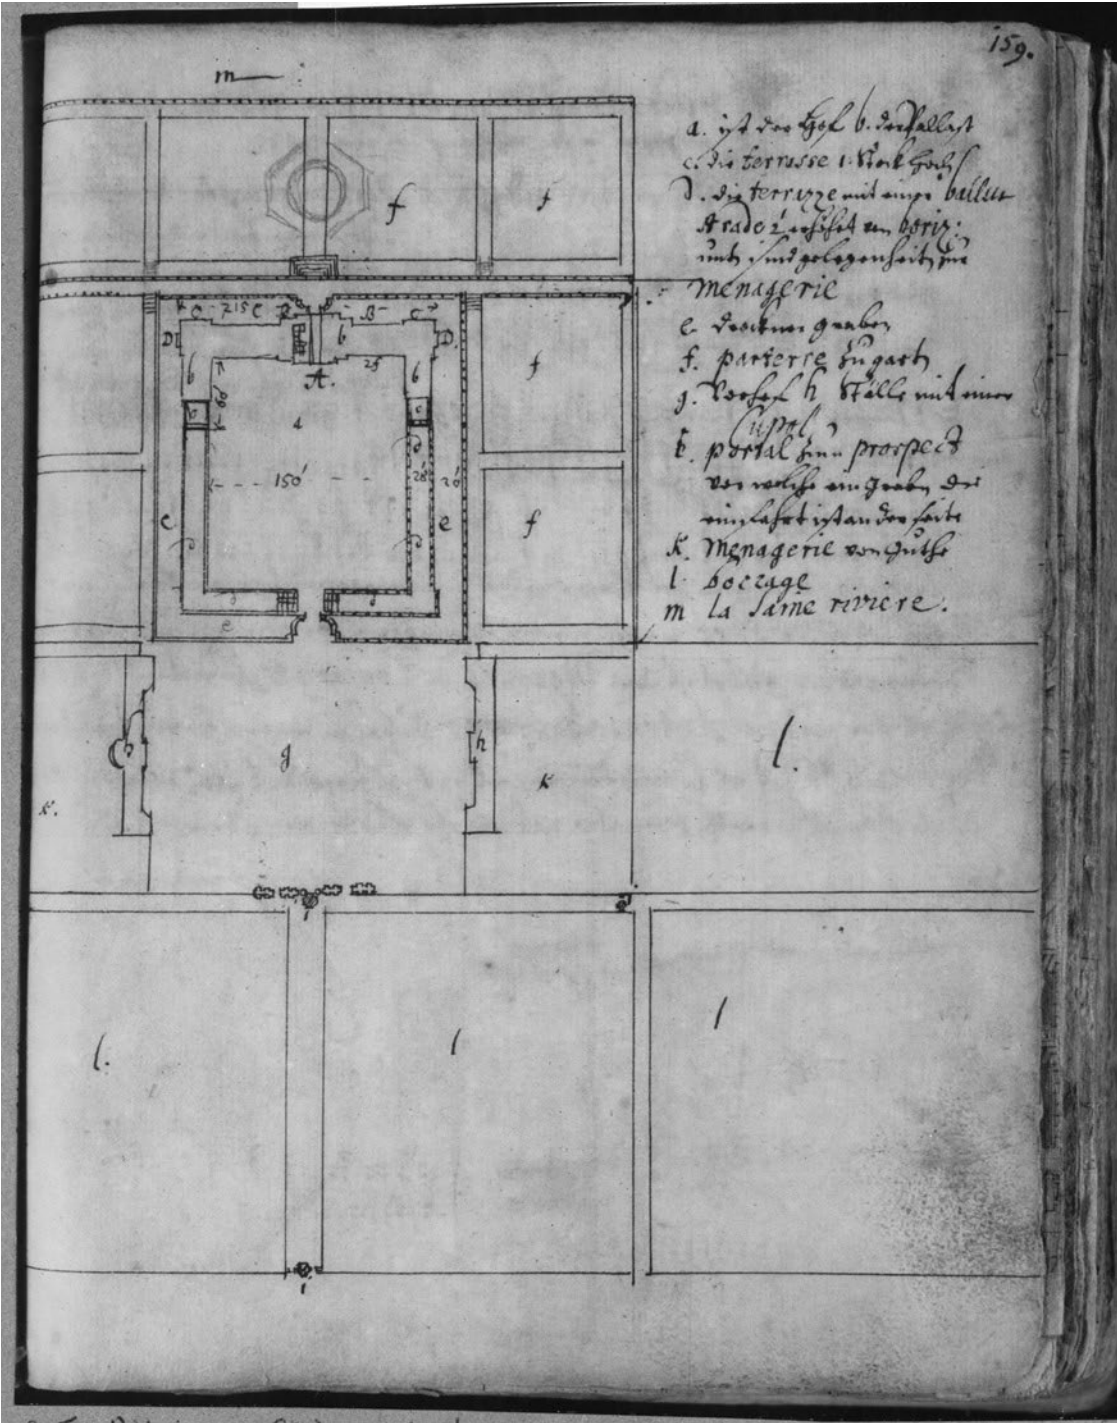 159.
m
a. ist der Hof b. der Pallast
c. die terrasse 1. Stock hoch
D. die terrazze mit einer ballu
strade erhöhet vom horiz:
unten sind gelegenheiten zur
menagerie
e. drockner graben
f. parterre zu garten
g. Vorhof h Ställe mit einer
Cupol
portal zum prospect
vor welche ein graben die
einfahrt ist an der seite
K. menagerie von
l. boccage
m la Saine riviere.
f f
C 215 C B B C
D b D.
b 25 b
A.
60
a
f
150 28 20
c e
f
g g
e
h g h
K. K l.
i
l. l l
i